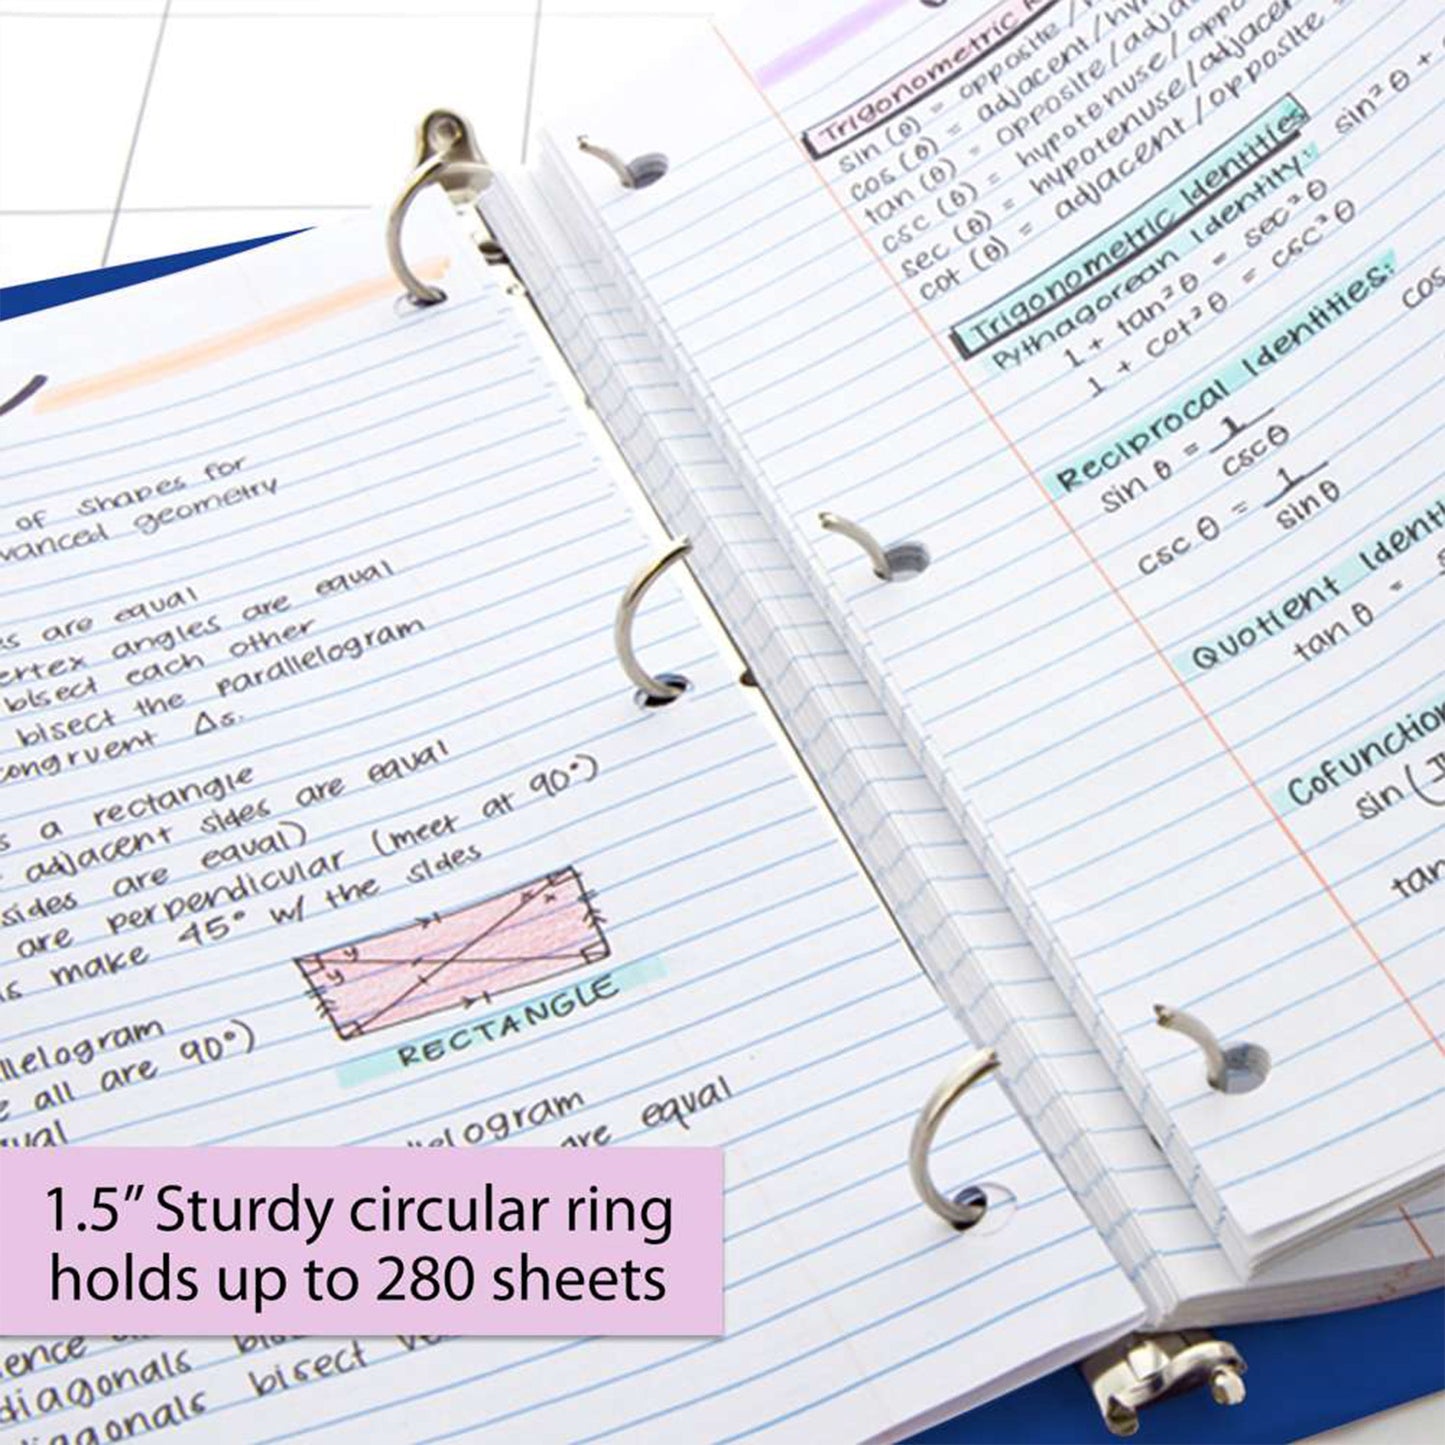 of shapes for
vanced geometry
es are equal
ertex angles are equal
bisect each other
bisect the parallelogram
congruent Δs.
s a rectangle
adjacent sides are equal
sides are equal)
are perpendicular (meet at 90°)
s make 45° w/ the sides
y
y
x
x
RECTANGLE
llelogram
e all are 90°)
ual
llelogram
are equal
1.5” Sturdy circular ring
holds up to 280 sheets
ence
diagonals
iagonals bisect
Trigonometric
sin (θ) = opposite/
cos (θ) = adjacent/hy
tan (θ) = opposite/adja
csc (θ) = hypotenuse/oppo
sec (θ) = hypotenuse/adjacen
cot (θ) = adjacent/opposite
Trigonometric Identities
Pythagorean Identity: sin²θ +
1 + tan²θ = sec²θ
1 + cot²θ = csc²θ
Reciprocal Identities:
cos
sin θ = 1/cscθ
csc θ = 1/sinθ
Quotient Identi
tan θ =
Cofunction
sin (
tan